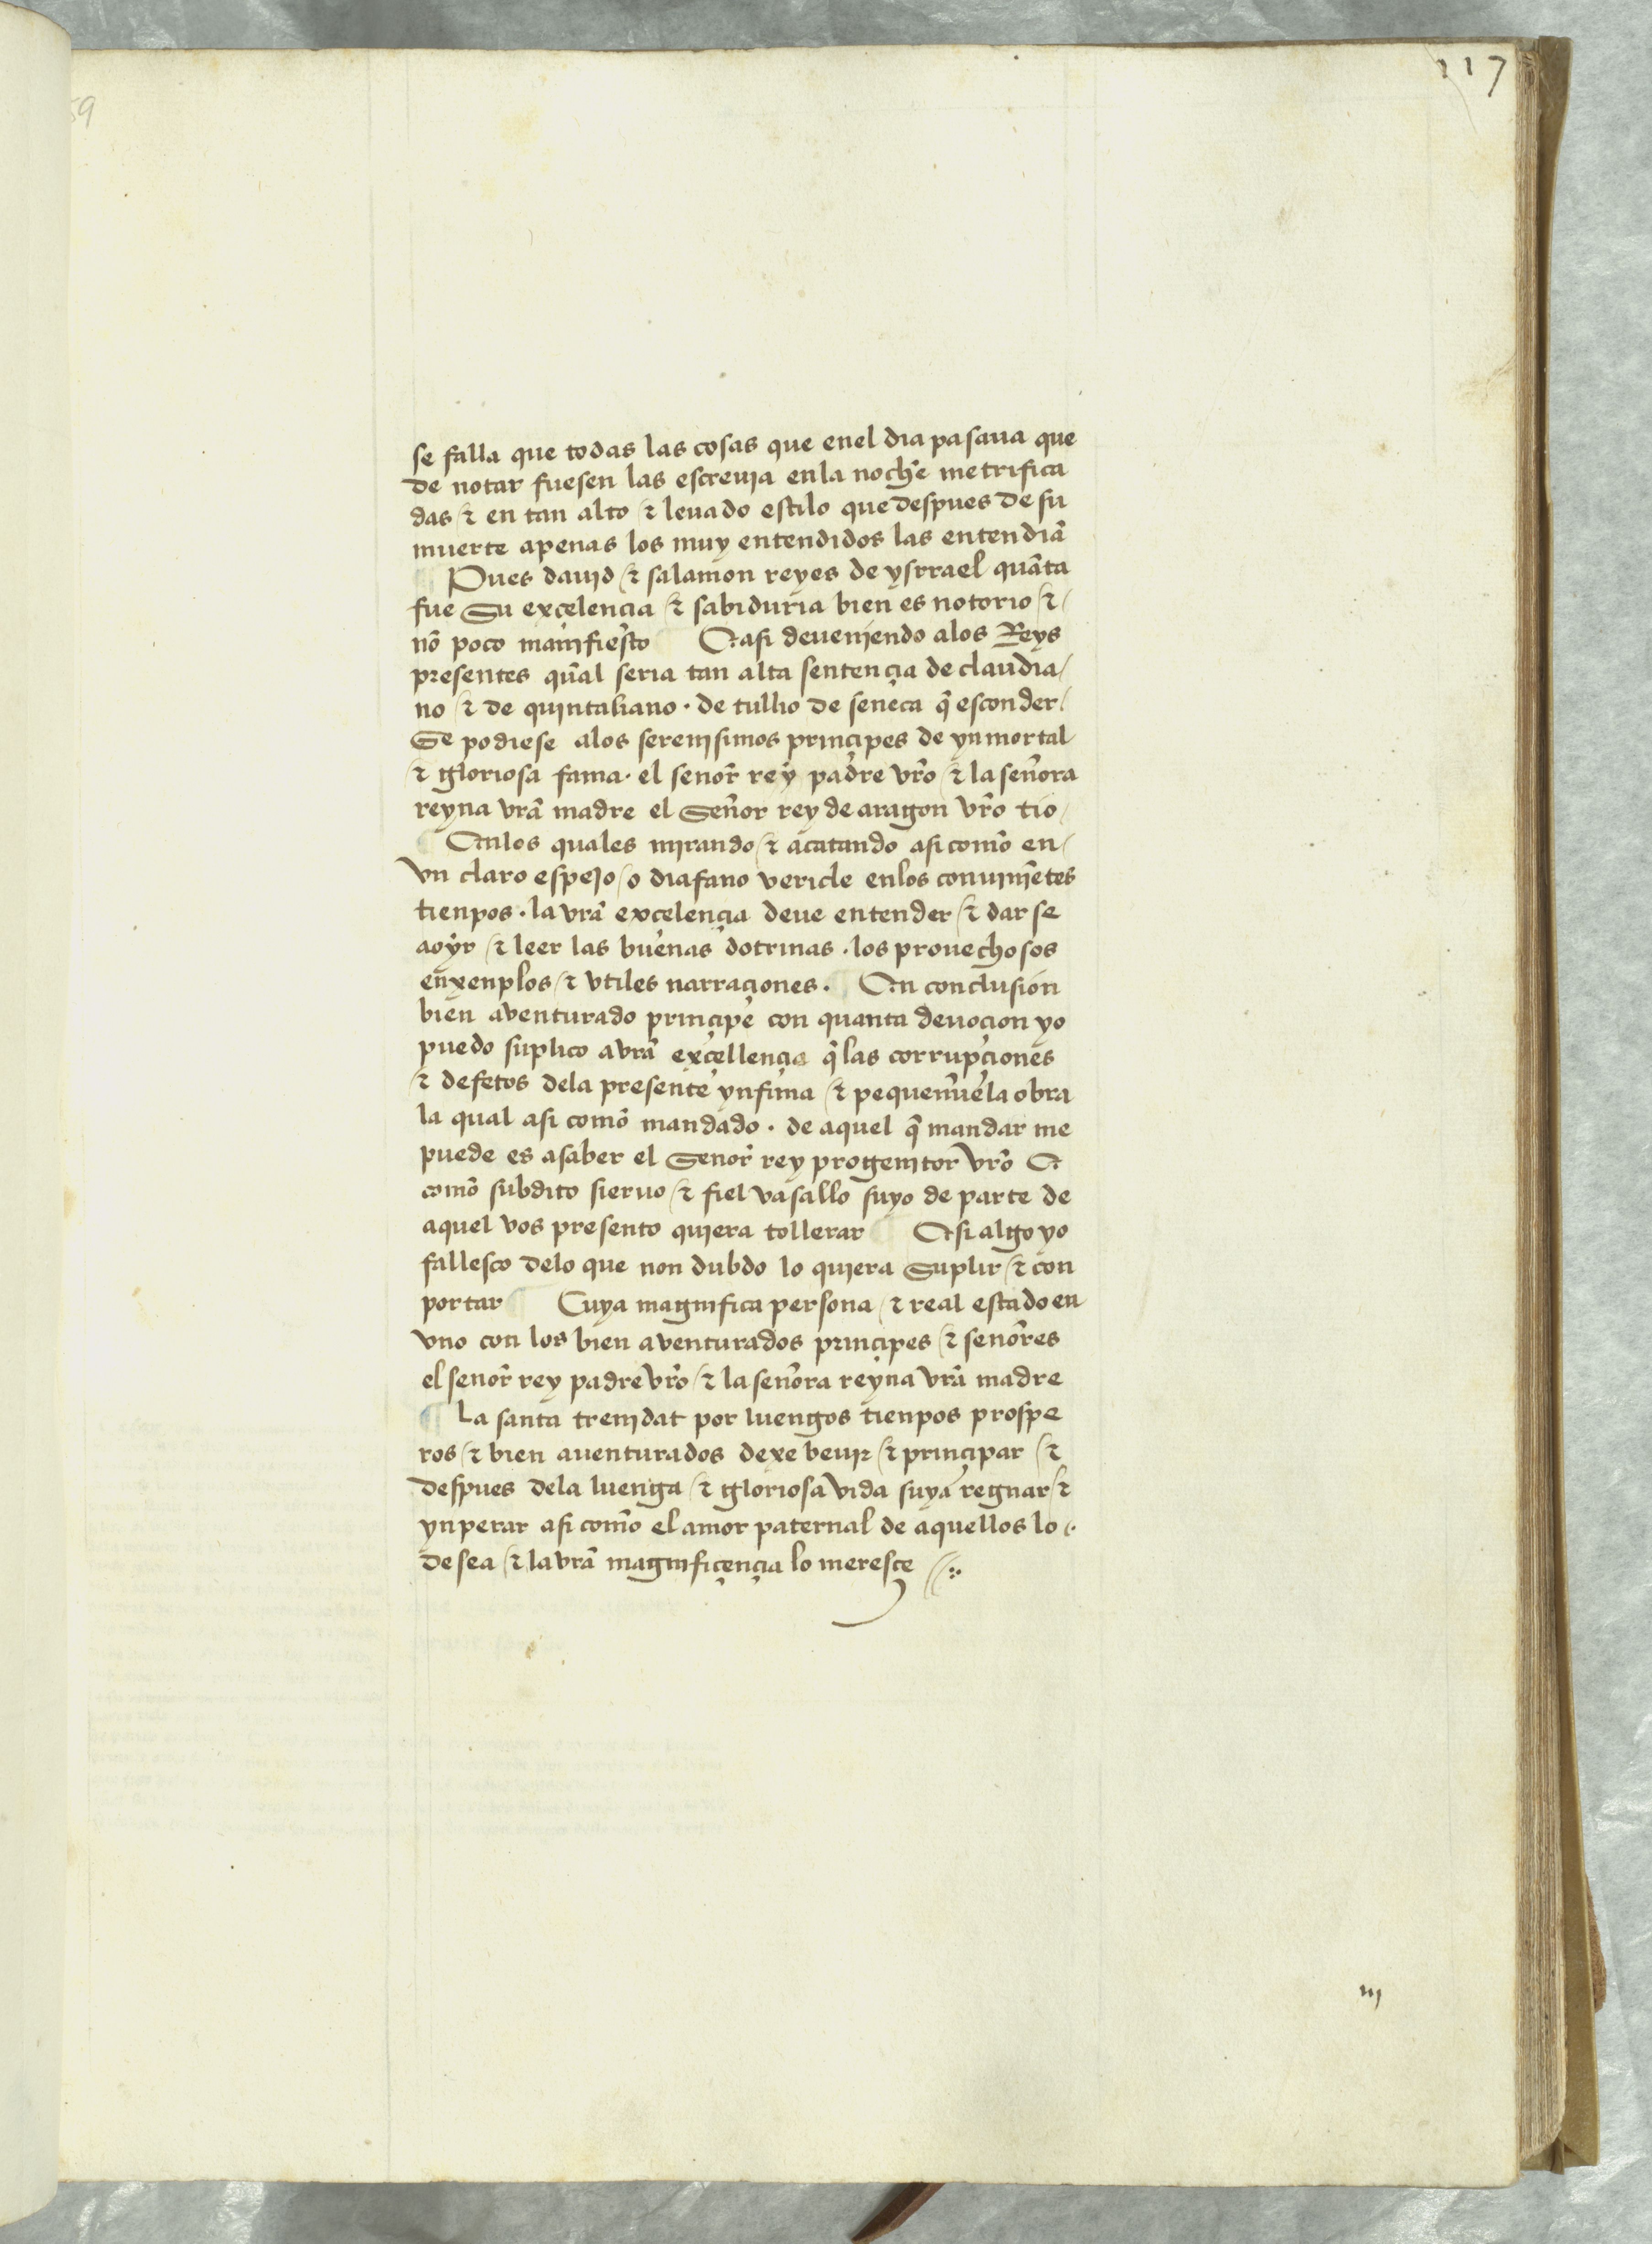 117
59
se falla que todas las cosas que enel dia pasaua que
de notar fuesen las escreuja enla noche metrifica
das & en tan alto & leuado estilo que despues de su
muerte apenas los muy entendidos las entendiā
Pues dauid & salamon reyes de ysrrael quāta
fue Su exçelencia & sabiduria bien es notorio &
nō poco manifiesto E asi deueniendo alos Reys
presentes qual seria tan alta sentençia de claudia/
no & de quintaliano · de tullio de seneca q̄ esconder/
Se podiese alos serenisimos prinçipes de ynmortal
& gloriosa fama · el señor rey padre vr̄o & la señora
reyna vrā madre el Señor rey de aragon vr̄o tio/
Enlos quales mirando & acatando asi comō en/
vn claro espejo / o diafano vericle enlos conuinjētes
tienpos · la vrā exçelençia deue entender & dar se
aoyr & leer las buenas dotrinas · los prouechosos
enxenplos & vtiles narraçiones · En conclusion
bien aventurado prinçipe con quanta deuoçion yo
puedo suplico avrā exçellençia q̄ las corrupçiones
& defetos dela presente ynfima & pequeñuela obra
la qual asi comō mandado · de aquel q̄ mandar me
puede es asaber el Señor rey progenitor vr̄o E
comō subdito sieruo & fiel vasallo suyo de parte de
aquel vos presento quiera tollerar E si algo yo
fallesco delo que non dubdo lo quiera Suplir & con
portar Cuya magnifica persona & real estado en
vno con los bien aventurados prinçipes & señores
el señor rey padre vr̄o & la señora reyna vrā madre
La santa trenidat por luengos tienpos prospe
ros & bien auenturados dexe beuir & prinçipar &
despues dela luenga & gloriosa vida suya regnar &
ynperar asi comō el amor paternal de aquellos lo
desea & la vrā magnifiçençia lo meresçe
iij